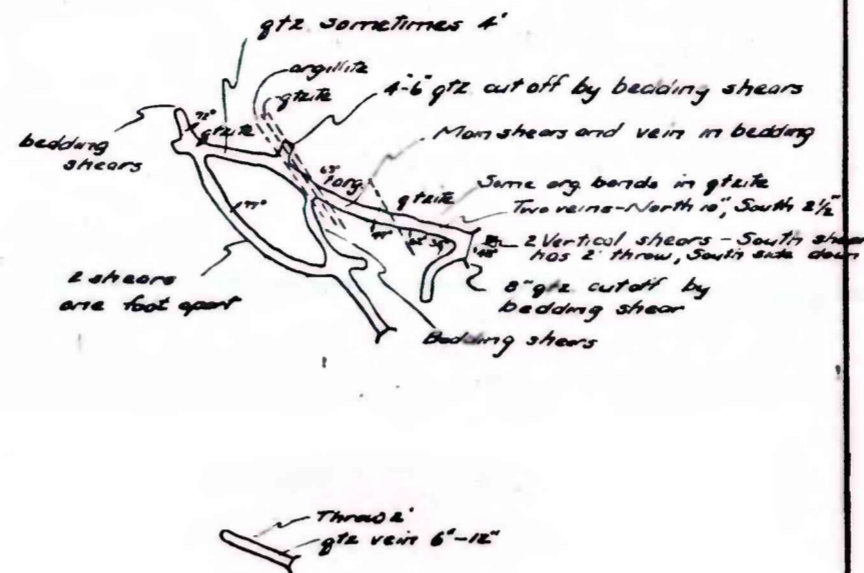 qtz sometimes 4'
argillite
qtzite
4"-6" qtz cut off by bedding shears
72°
qtzite
bedding
shears
Main shears and vein in bedding
arg
qtzite
Some arg bands in qtzite
Two veins-North 10", South 2½"
2 Vertical shears - South shear
has 2' throw, South side down
2 shears
one foot apart
8" qtz cutoff by
bedding shear
Bedding shears
Throw 2'
qtz vein 6"-12"